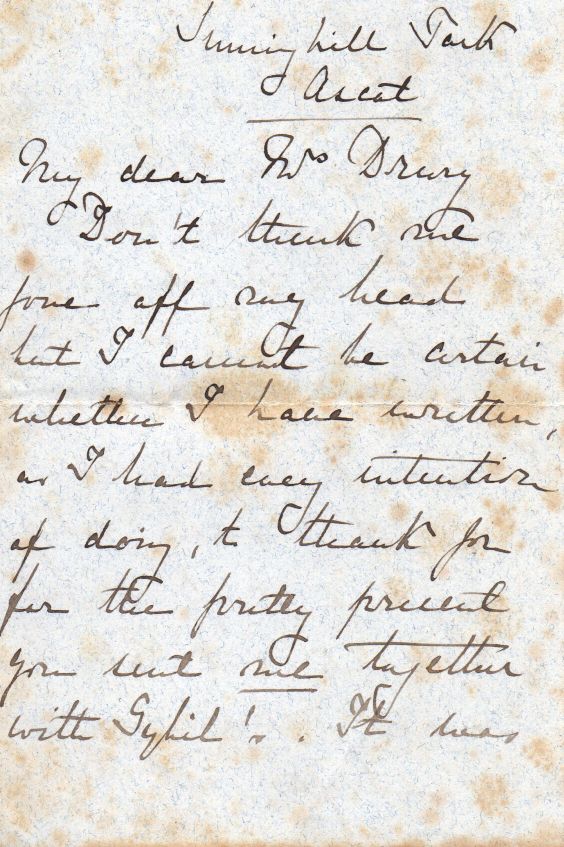 Sunninghill Park
Ascot
My dear Mrs Drury
Don't think me
gone off my head
but I cannot be certain
whether I have written,
as I had every intention
of doing, to thank you
for the pretty present
you sent me together
with Sybil's. It was